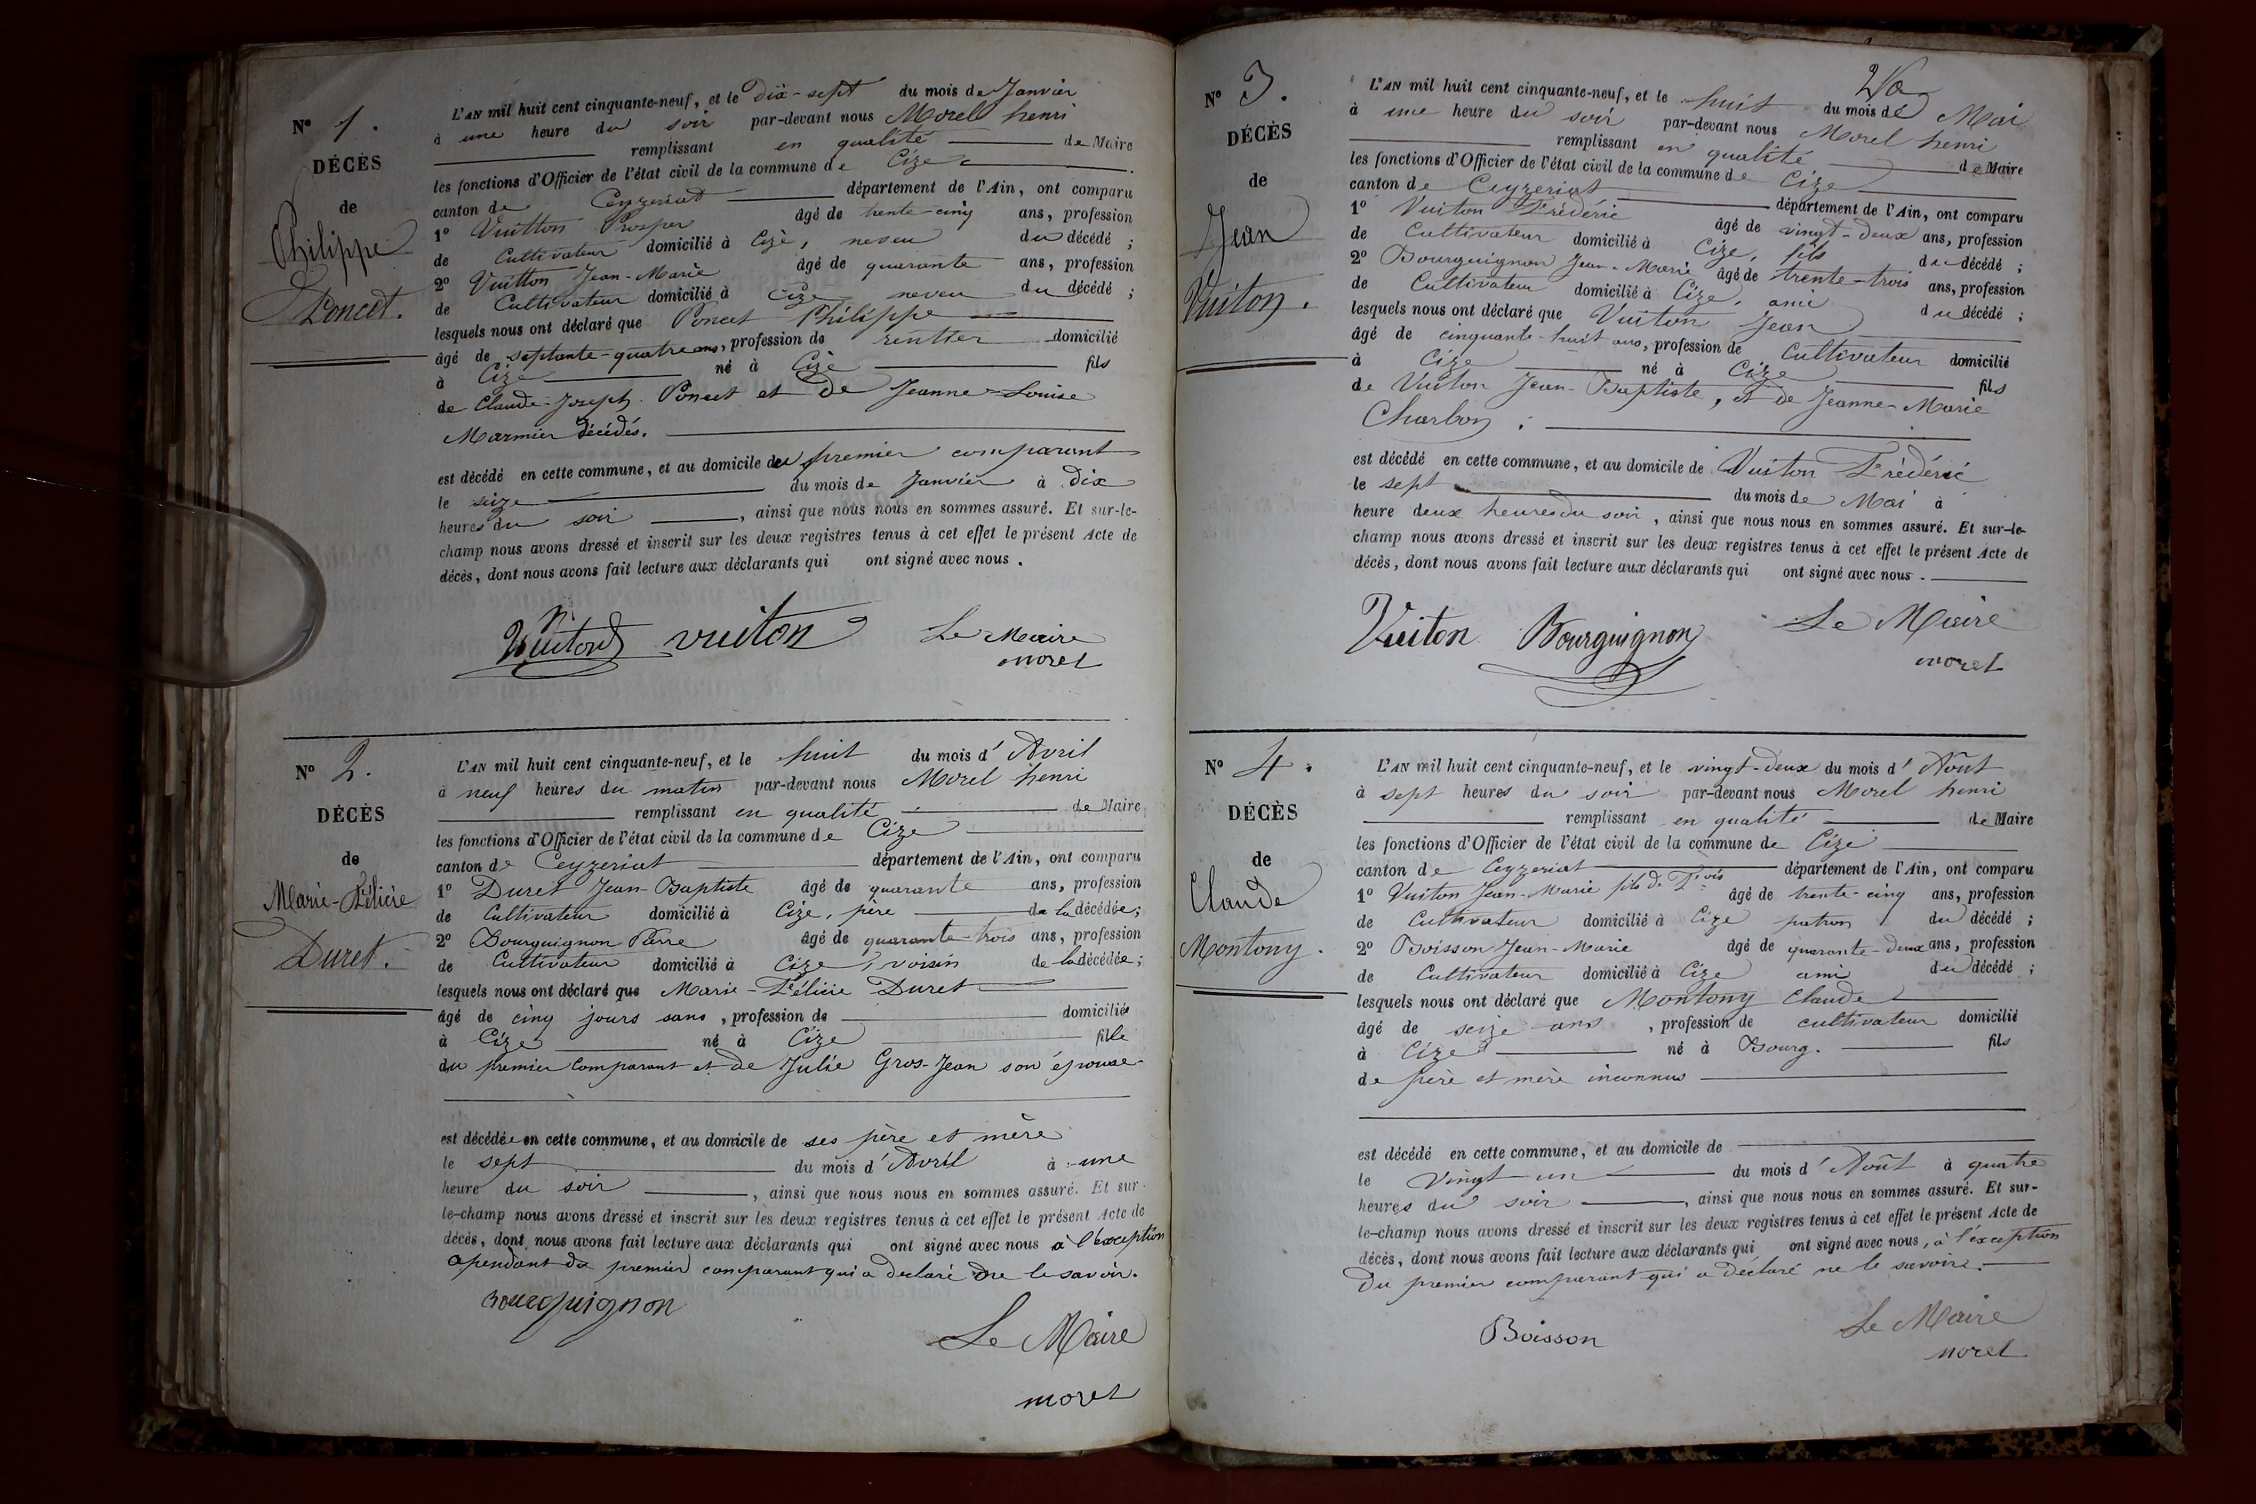 N° 1.
DÉCÈS
de
Philippe
Poncet.
L'AN mil huit cent cinquante-neuf, et le Dix-sept du mois de Janvier
à une heure du soir par-devant nous Morel henri
remplissant en qualité de Maire
les fonctions d'Officier de l'état civil de la commune de Cize
canton de Ceyzeriat département de l'Ain, ont comparu
1° Vuitton Prosper âgé de trente-cinq ans, profession
de Cultivateur domicilié à Cize, neveu du décédé ;
2° Vuitton Jean-Marie âgé de quarante ans, profession
de Cultivateur domicilié à Cize neveu du décédé ;
lesquels nous ont déclaré que Poncet Philippe
âgé de septante-quatre ans, profession de rentier domicilié
à Cize né à Cize fils
de Claude-Joseph Poncet et De Jeanne-Louise
Marmier décédés.
est décédé en cette commune, et au domicile du premier comparant
le seize du mois de Janvier à Dix
heures du soir , ainsi que nous nous en sommes assuré. Et sur-le-
champ nous avons dressé et inscrit sur les deux registres tenus à cet effet le présent Acte de
décès, dont nous avons fait lecture aux déclarants qui ont signé avec nous .
Vuiton vuiton Le Maire
morel
N° 2.
DÉCÈS
de
Marie-Félicie
Duret.
L'AN mil huit cent cinquante-neuf, et le huit du mois d' Avril
à neuf heures du matin par-devant nous Morel henri
remplissant en qualité de Maire
les fonctions d'Officier de l'état civil de la commune de Cize
canton de Ceyzeriat département de l'Ain, ont comparu
1° Duret Jean-Baptiste âgé de quarante ans, profession
de Cultivateur domicilié à Cize, père de la décédée ;
2° Bourguignon Pierre âgé de quarante-trois ans, profession
de Cultivateur domicilié à Cize, voisin de la décédée ;
lesquels nous ont déclaré que Marie-Félicie Duret
âgé de cinq jours sans , profession de domiciliée
à Cize né à Cize fille
du premier Comparant et de Julie Gros-Jean son épouse
est décédée en cette commune, et au domicile de ses père et mère
le sept du mois d' Avril à une
heure du soir , ainsi que nous nous en sommes assuré. Et sur-
le-champ nous avons dressé et inscrit sur les deux registres tenus à cet effet le présent Acte de
décès, dont nous avons fait lecture aux déclarants qui ont signé avec nous à l'exception
cependant du premier comparant qui a declaré ne le savoir.
Bourguignon
Le Maire
morel
26
N° 3.
DÉCÈS
de
Jean
Vuiton.
L'AN mil huit cent cinquante-neuf, et le huit du mois de Mai
à une heure du soir par-devant nous Morel henri
remplissant en qualité de Maire
les fonctions d'Officier de l'état civil de la commune de Cize
canton de Ceyzeriat département de l'Ain, ont comparu
1° Vuiton Frédéric âgé de vingt-deux ans, profession
de Cultivateur domicilié à Cize, fils du décédé ;
2° Bourguignon Jean-Marie âgé de trente-trois ans, profession
de Cultivateur domicilié à Cize, ami du décédé ;
lesquels nous ont déclaré que Vuiton Jean
âgé de cinquante-huit ans, profession de Cultivateur domicilié
à Cize né à Cize fils
de Vuiton Jean-Baptiste, et de Jeanne-Marie
Charbon ;
est décédé en cette commune, et au domicile de Vuiton Frédéric
le sept du mois de Mai à
heure deux heures du soir , ainsi que nous nous en sommes assuré. Et sur-le-
champ nous avons dressé et inscrit sur les deux registres tenus à cet effet le présent Acte de
décès, dont nous avons fait lecture aux déclarants qui ont signé avec nous .
Vuiton Bourguignon Le Maire
morel
N° 4.
DÉCÈS
de
Claude
Montony.
L'AN mil huit cent cinquante-neuf, et le vingt-deux du mois d' Août
à sept heures du soir par-devant nous Morel henri
remplissant en qualité de Maire
les fonctions d'Officier de l'état civil de la commune de Cize
canton de Ceyzeriat département de l'Ain, ont comparu
1° Vuiton Jean-Marie fils de Fçois âgé de trente-cinq ans, profession
de Cultivateur domicilié à Cize patron du décédé ;
2° Boisson Jean-Marie âgé de quarante-deux ans, profession
de Cultivateur domicilié à Cize ami du décédé ;
lesquels nous ont déclaré que Montony Claude
âgé de seize ans , profession de cultivateur domicilié
à Cize né à Bourg. fils
de père et mère inconnus
est décédé en cette commune, et au domicile de
le Vingt-un du mois d' Août à quatre
heures du soir , ainsi que nous nous en sommes assuré. Et sur-
le-champ nous avons dressé et inscrit sur les deux registres tenus à cet effet le présent Acte de
décès, dont nous avons fait lecture aux déclarants qui ont signé avec nous, à l'exception
Du premier comparant qui a déclaré ne le savoire.
Boisson
Le Maire
morel